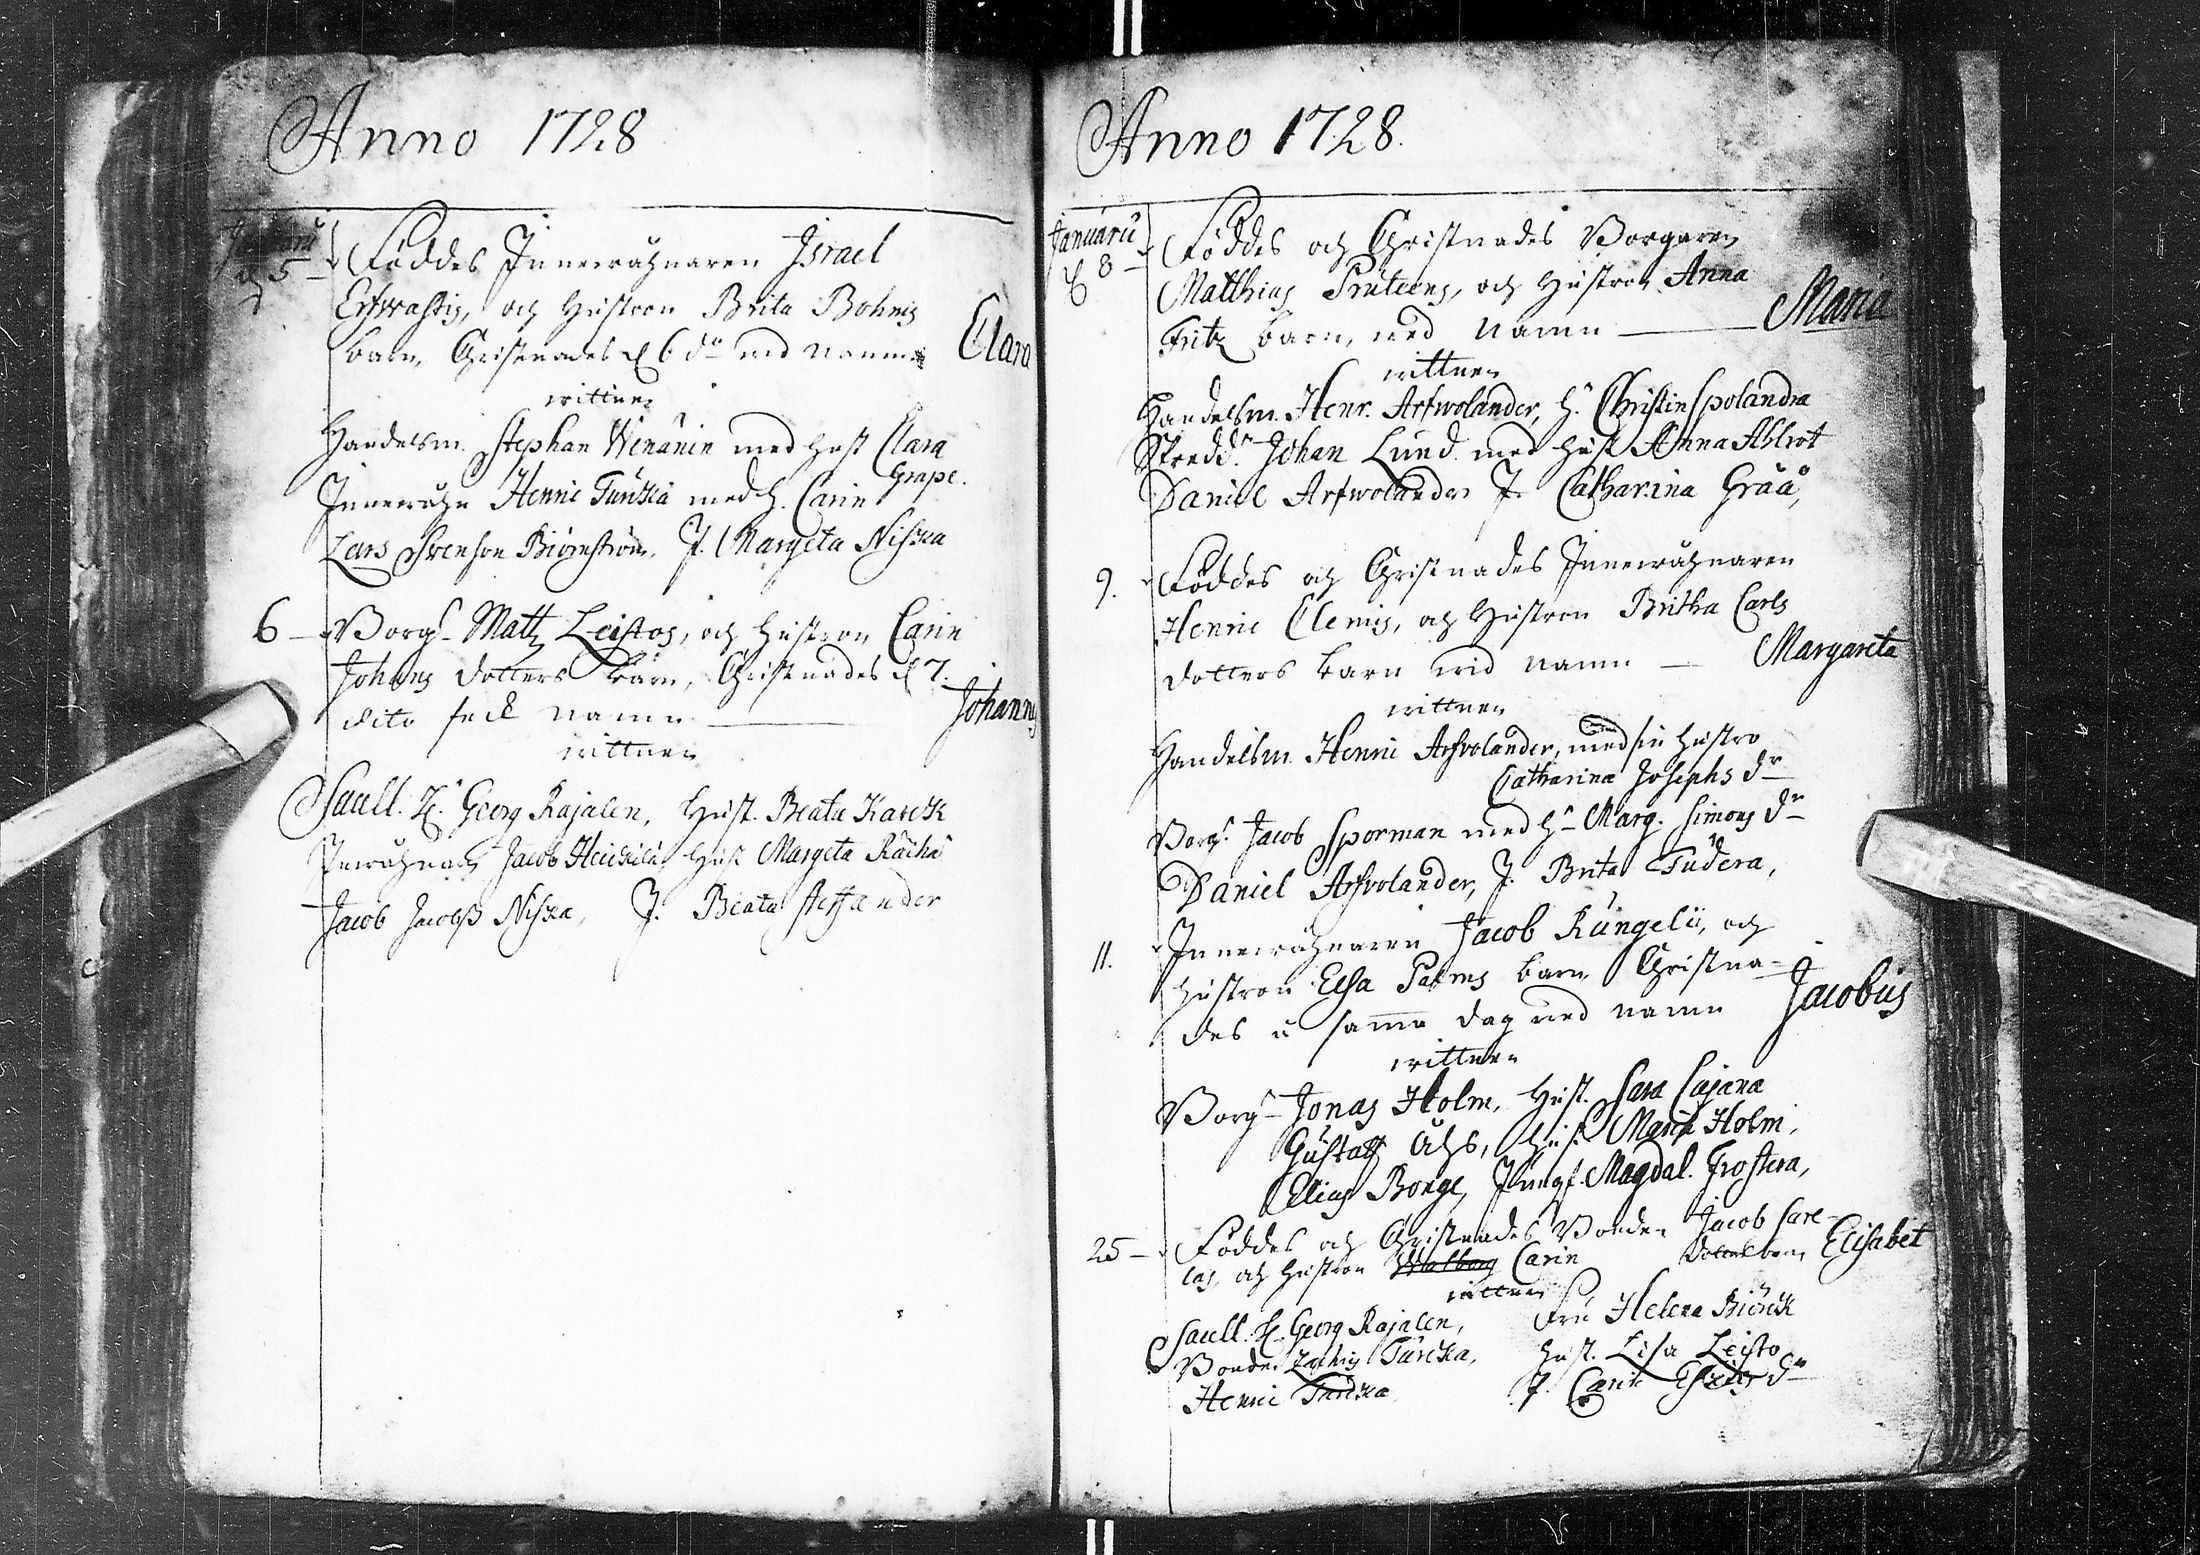 Anno 1728
Januarii
d 5 Föddes Innewåhnaren Israel
och Hustron Brita Bohms
barn, Christnades d 6 do med namn Clara
wittnen
Handelsm. Stephan Wenänin med Hust Clara
Grape.
Innewåhn Henric Turkia med H. Carin
Lars Svenson Biörnström, J. Margeta Niska
6 Borg. Matz Leistos, och Hustron Carin
Johans dotters barn, Christnades d 7.
dito feck namn Johannes
wittnen
Saull. H. Georg Rajalen, Hust. Beata Karck
Inwåhnaren Jacob Heickilä Hust Margeta Räihä
Jacob Jacobss Niska, J. Beata
Anno 1728.
Januarii
d 8 Föddes och Christnades Borgaren
Matthias Pruteens, och Hustron Anna
Fritz barn, med namn Maria
wittnen
Handelsm. Henr. Arfwolander, H. Christin Spolandra
Johan Lund med Hust Anna Ahlrot
Daniel Arfwolander J. Catharina Gråå,
9. Föddes och Christnades Innewåhnaren
Henric Clemis, och Hustron Britha Carls
dotters barn wid namn Margareta
wittnen
Handelsm Henric Arfvolander, med sin Hustro
Catharina Josephs dr
Borg. Jacob Sporman med H. Marg. Simons dr
Daniel Arfvolander, J. Brita Tudera,
11. Innewåhnaren Jacob Rungelii, och
Hustron Elsa Palms barn Christna-
des å samma dag med namn Jacobus
wittnen
Borg. Jonas Holm, Hust. Sara Cajana
Gustaff Åhs, Hust Maria Holm,
Elias Borge, Jungf. Magdal. Frostera,
25 Föddes och Christnades Bonden Jacob Sare-
las, och Hustron Walborg Carin dotters barn Elisabet
wittnen
Saull. H. Georg Rajalen, Fru Helena Biörck
Bonden Turcka, Hust. Lisa Leisto
Henric Turcka J. Carin dr